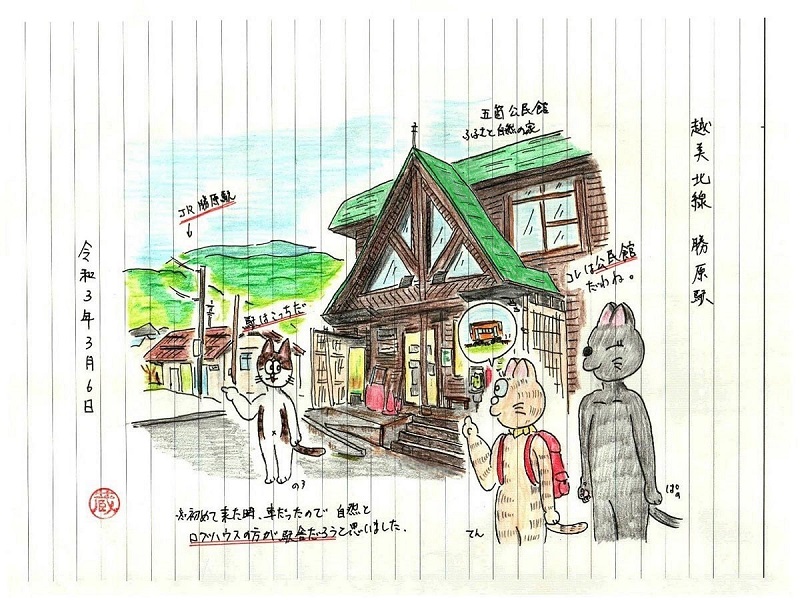 越美北線 勝原駅
五箇公民館
ふるさと自然の家
コレは公民館
だわね。
JR 勝原駅
駅はこっちだ
のろ
てん
ぱぬ
※初めて来た時、車だったので 自然と
ログハウスの方が駅舎だろうと思いました.
令和3年3月6日
蔵